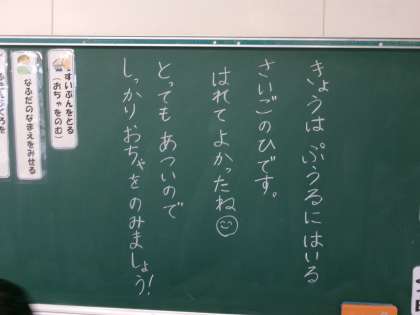 きょうは ぷうるにはいる
さいごのひです。
はれてよかったね
とっても あついので
しっかりおちゃをのみましょう!
すいぶんをとる
(おちゃをのむ)
なふだのなまえをみせる